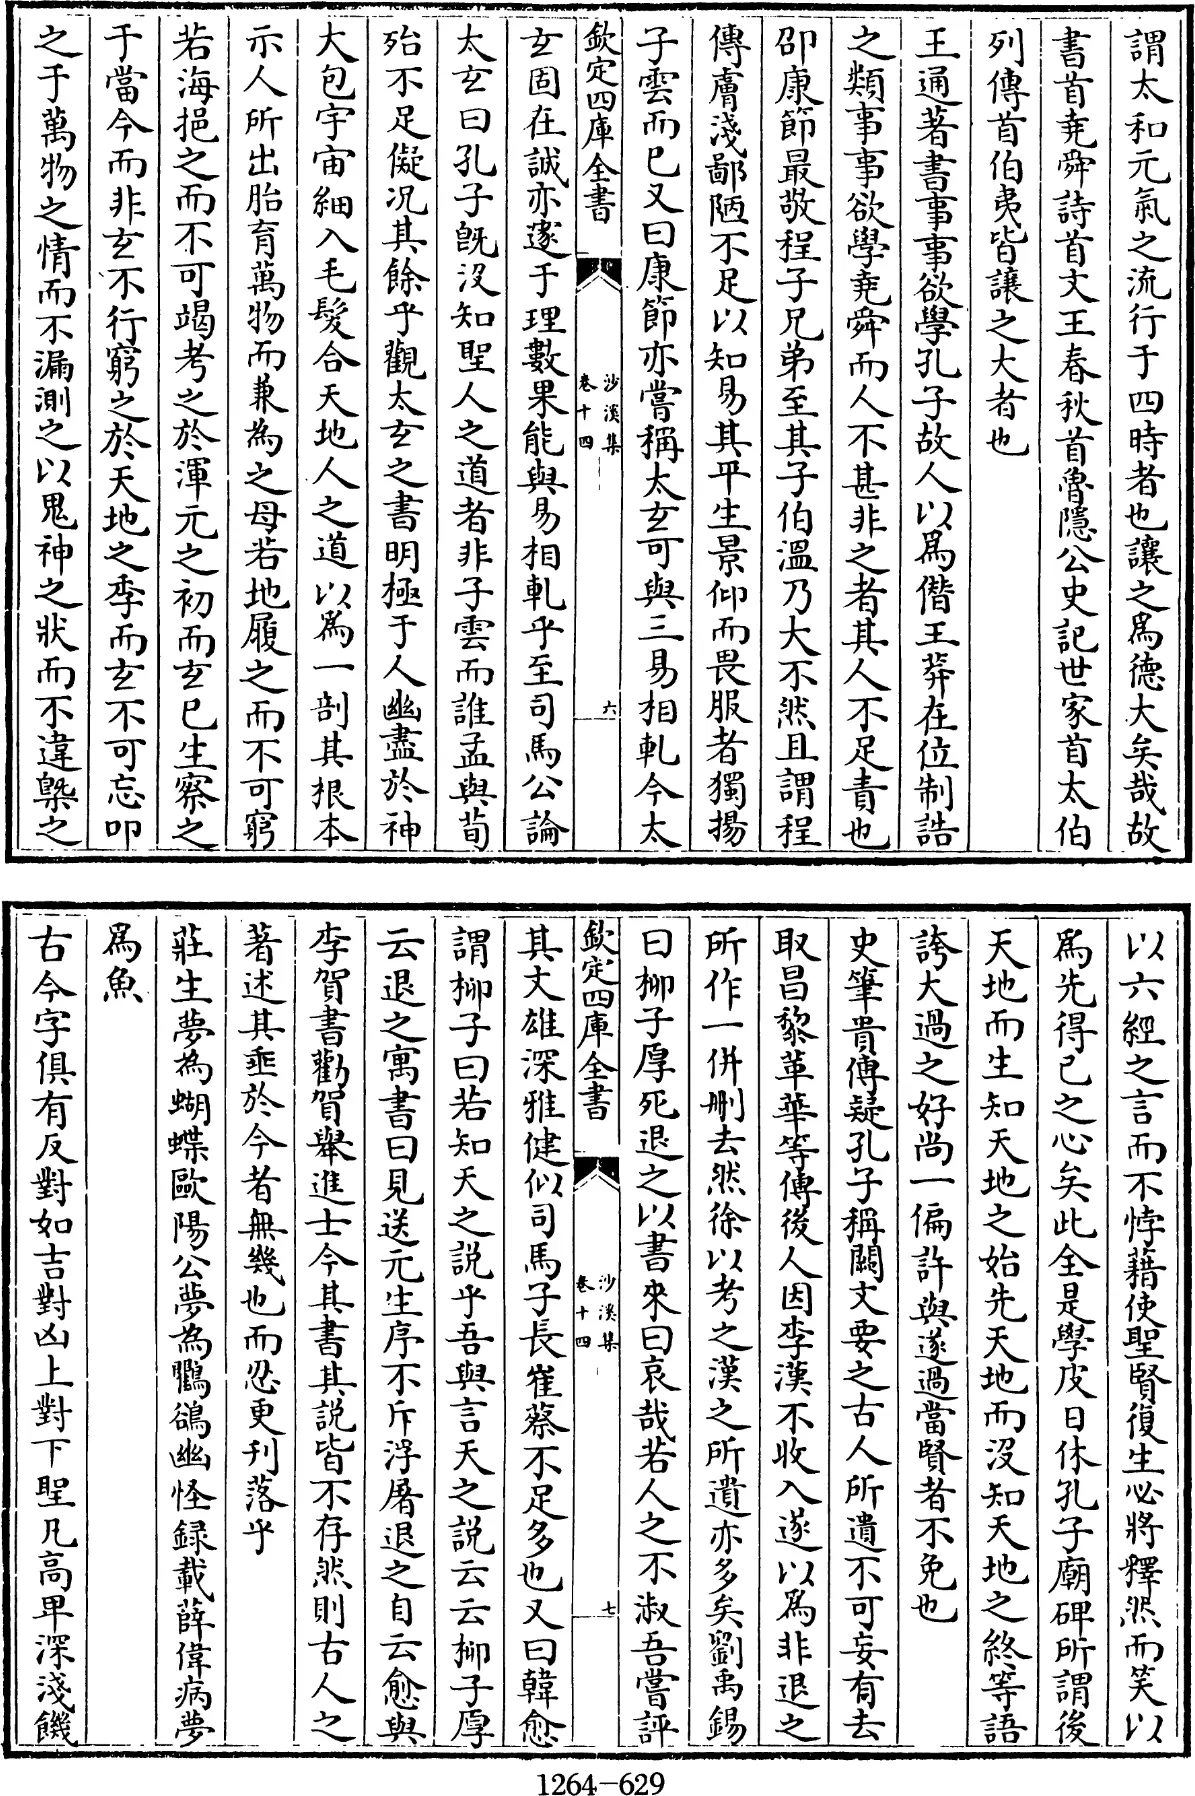 謂太和元氣之流行于四時者也讓之爲德大矣哉故
書首堯舜詩首文王春秋首魯隱公史記世家首太伯
列傳首伯夷皆讓之大者也
王通著書事事欲學孔子故人以爲僭王莽在位制誥
之類事事欲學堯舜而人不甚非之者其人不足責也
邵康節最敬程子兄弟至其子伯溫乃大不然且謂程
傳膚淺鄙陋不足以知易其平生景仰而畏服者獨揚
子雲而已又曰康節亦嘗稱太玄可與三易相軋今太
欽定四庫全書
沙溪集
卷十四
六
玄固在誠亦邃于理數果能與易相軋乎至司馬公論
太玄曰孔子旣沒知聖人之道者非子雲而誰孟與荀
殆不足儗况其餘乎觀太玄之書明極于人幽盡於神
大包宇宙細入毛髮合天地人之道以爲一剖其根本
示人所出胎育萬物而兼為之母若地履之而不可窮
若海挹之而不可竭考之於渾元之初而玄已生察之
于當今而非玄不行窮之於天地之季而玄不可忘叩
之于萬物之情而不漏測之以鬼神之狀而不違槩之
以六經之言而不悖藉使聖賢復生必將釋然而笑以
爲先得己之心矣此全是學皮日休孔子廟碑所謂後
天地而生知天地之始先天地而沒知天地之終等語
誇大過之好尚一偏許與遂過當賢者不免也
史筆貴傳疑孔子稱闕文要之古人所遺不可妄有去
取昌黎革華等傳後人因李漢不收入遂以爲非退之
所作一併刪去然徐以考之漢之所遺亦多矣劉禹錫
曰柳子厚死退之以書來曰哀哉若人之不淑吾嘗評
欽定四庫全書
沙溪集
卷十四
七
其文雄深雅健似司馬子長崔蔡不足多也又曰韓愈
謂柳子曰若知天之說乎吾與言天之說云云柳子厚
云退之寓書曰見送元生序不斥浮屠退之自云愈與
李賀書勸賀舉進士今其書其説皆不存然則古人之
著述其垂於今者無幾也而忍更刋落乎
莊生夢為蝴蝶歐陽公夢為鸜鵒幽怪録載薛偉病夢
爲魚
古今字俱有反對如吉對凶上對下聖凡高卑深淺饑
1264-629